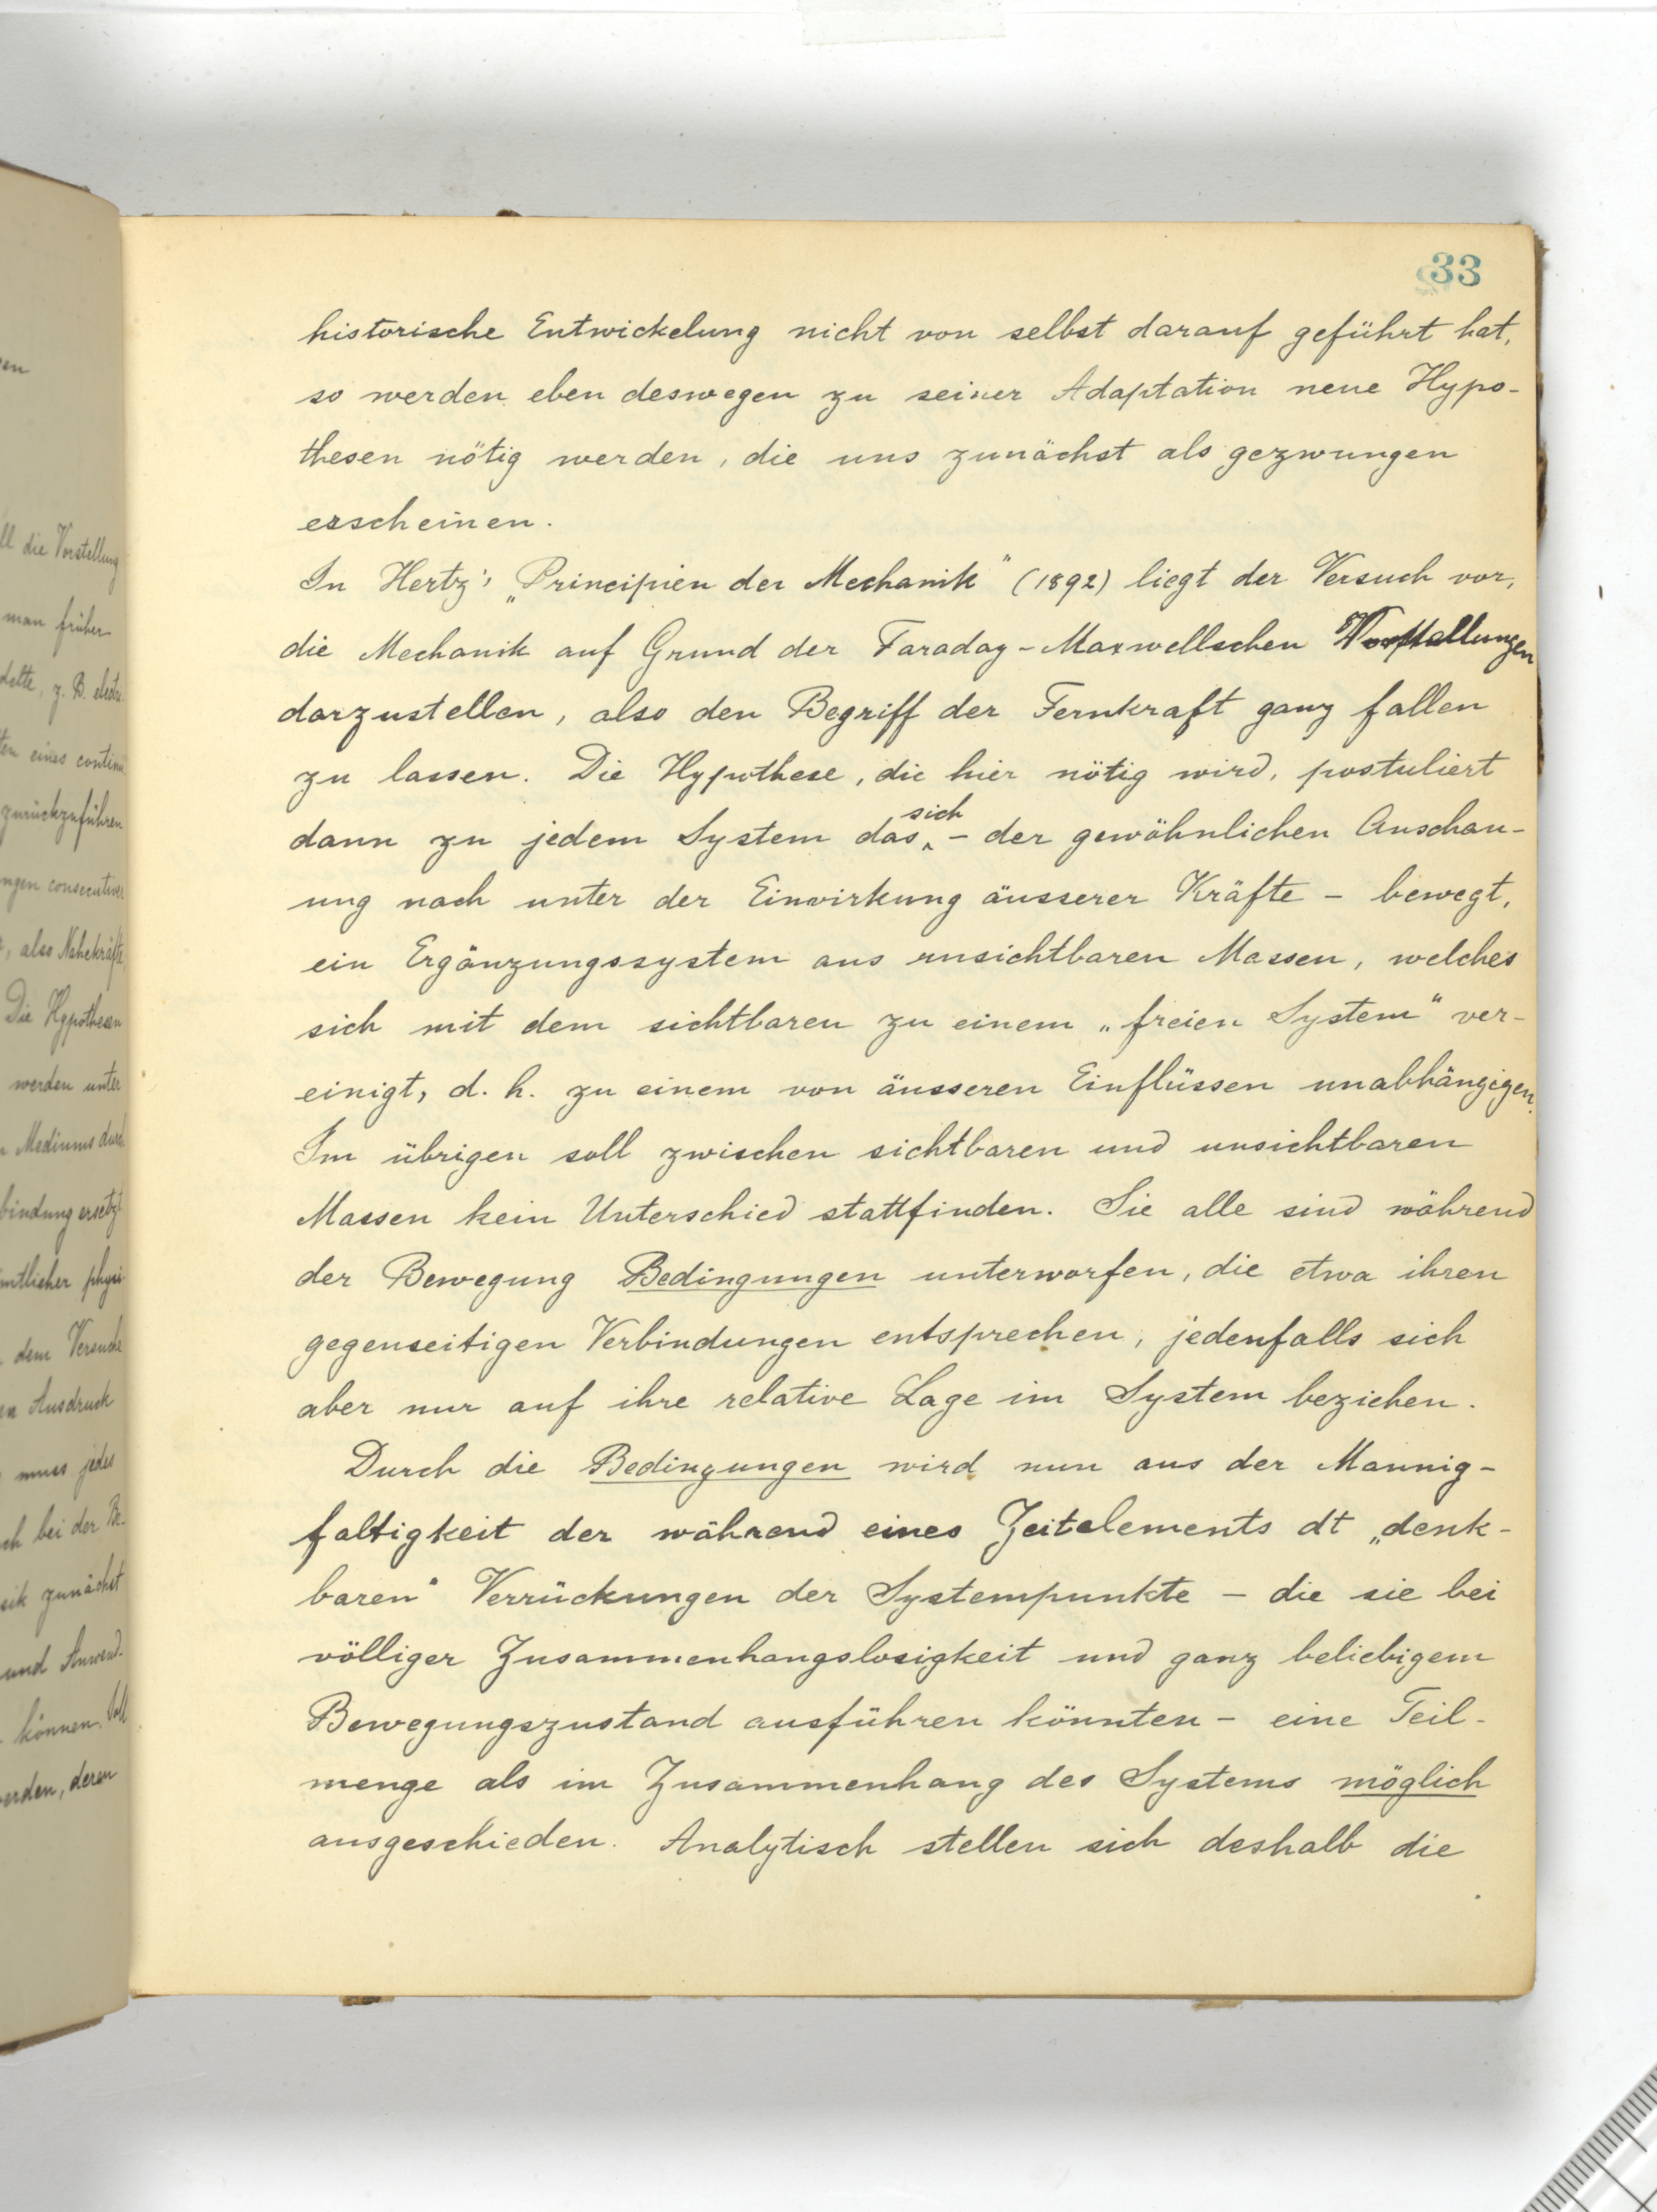 en
ll die Vorstellung
man früher
delte, z. B. electr.
ten eines continu
zurückzuführen
ngen consecutiver
, also Nahekräfte
Die Hypothesen
werden unter
Mediums durch
bindung ersetzt
mtlicher physi
dem Versuche
en Ausdruck
muss jedes
ch bei der Be-
sik zunächst
und Anwend-
können. Soll
erden, deren
33
historische Entwickelung nicht von selbst darauf geführt hat,
so werden eben deswegen zu seiner Adaptation neue Hypo-
thesen nötig werden, die uns zunächst als gezwungen
erscheinen.
In Hertz's „Principien der Mechanik" (1892) liegt der Versuch vor,
die Mechanik auf Grund der Faraday-Maxwellschen Vorstellungen
darzustellen, also den Begriff der Fernkraft ganz fallen
zu lassen. Die Hypothese, die hier nötig wird, postuliert
dann zu jedem System das sich - der gewöhnlichen Anschau-
ung nach unter der Einwirkung äusserer Kräfte - bewegt,
ein Ergänzungssystem aus unsichtbaren Massen, welches
sich mit dem sichtbaren zu einem „freien System" ver-
einigt, d. h. zu einem von äusseren Einflüssen unabhängigen.
Im übrigen soll zwischen sichtbaren und unsichtbaren
Massen kein Unterschied stattfinden. Sie alle sind während
der Bewegung Bedingungen unterworfen, die etwa ihren
gegenseitigen Verbindungen entsprechen, jedenfalls sich
aber nur auf ihre relative Lage im System beziehen.
Durch die Bedingungen wird nun aus der Mannig-
faltigkeit der während eines Zeitelements dt „denk-
baren" Verrückungen der Systempunkte - die sie bei
völliger Zusammenhangslosigkeit und ganz beliebigem
Bewegungszustand ausführen könnten - eine Teil-
menge als im Zusammenhang des Systems möglich
ausgeschieden. Analytisch stellen sich deshalb die